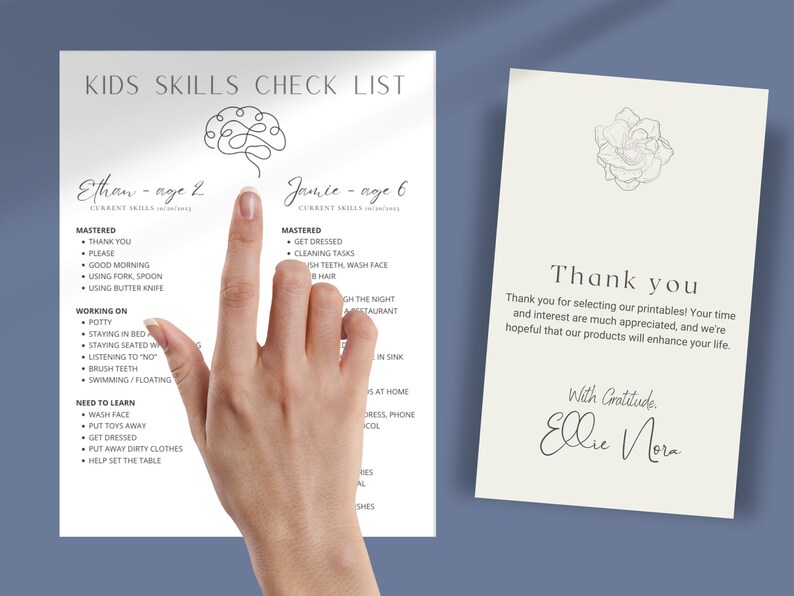 KIDS SKILLS CHECK LIST
Ethan - age 2
CURRENT SKILLS 10/20/2023
MASTERED
THANK YOU
PLEASE
GOOD MORNING
USING FORK, SPOON
USING BUTTER KNIFE
WORKING ON
POTTY
STAYING IN BED
STAYING SEATED
LISTENING TO "NO"
BRUSH TEETH
SWIMMING / FLOATING
NEED TO LEARN
WASH FACE
PUT TOYS AWAY
GET DRESSED
PUT AWAY DIRTY CLOTHES
HELP SET THE TABLE
Jamie - age 6
CURRENT SKILLS 10/20/2023
MASTERED
GET DRESSED
CLEANING TASKS
TEETH, WASH FACE
HAIR
THE NIGHT
IN SINK
AT HOME
PHONE
Thank you
Thank you for selecting our printables! Your time
and interest are much appreciated, and we're
hopeful that our products will enhance your life.
With Gratitude,
Ellie Nora